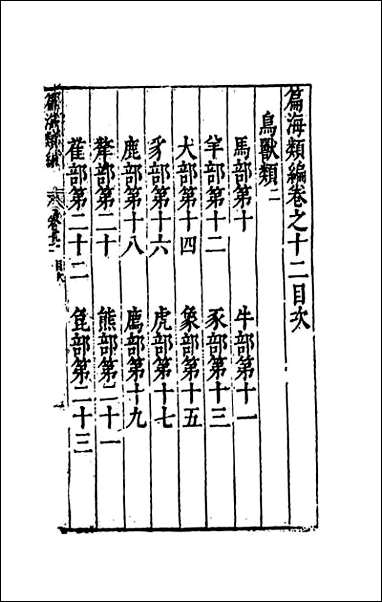 篇海類編卷之十二目次
鳥獸類二
馬部第十
牛部第十一
羊部第十二
豕部第十三
犬部第十四
象部第十五
豸部第十六
虎部第十七
鹿部第十八
廌部第十九
犛部第二十
熊部第二十一
萑部第二十二
㲋部第二十三
篇海類編
目次